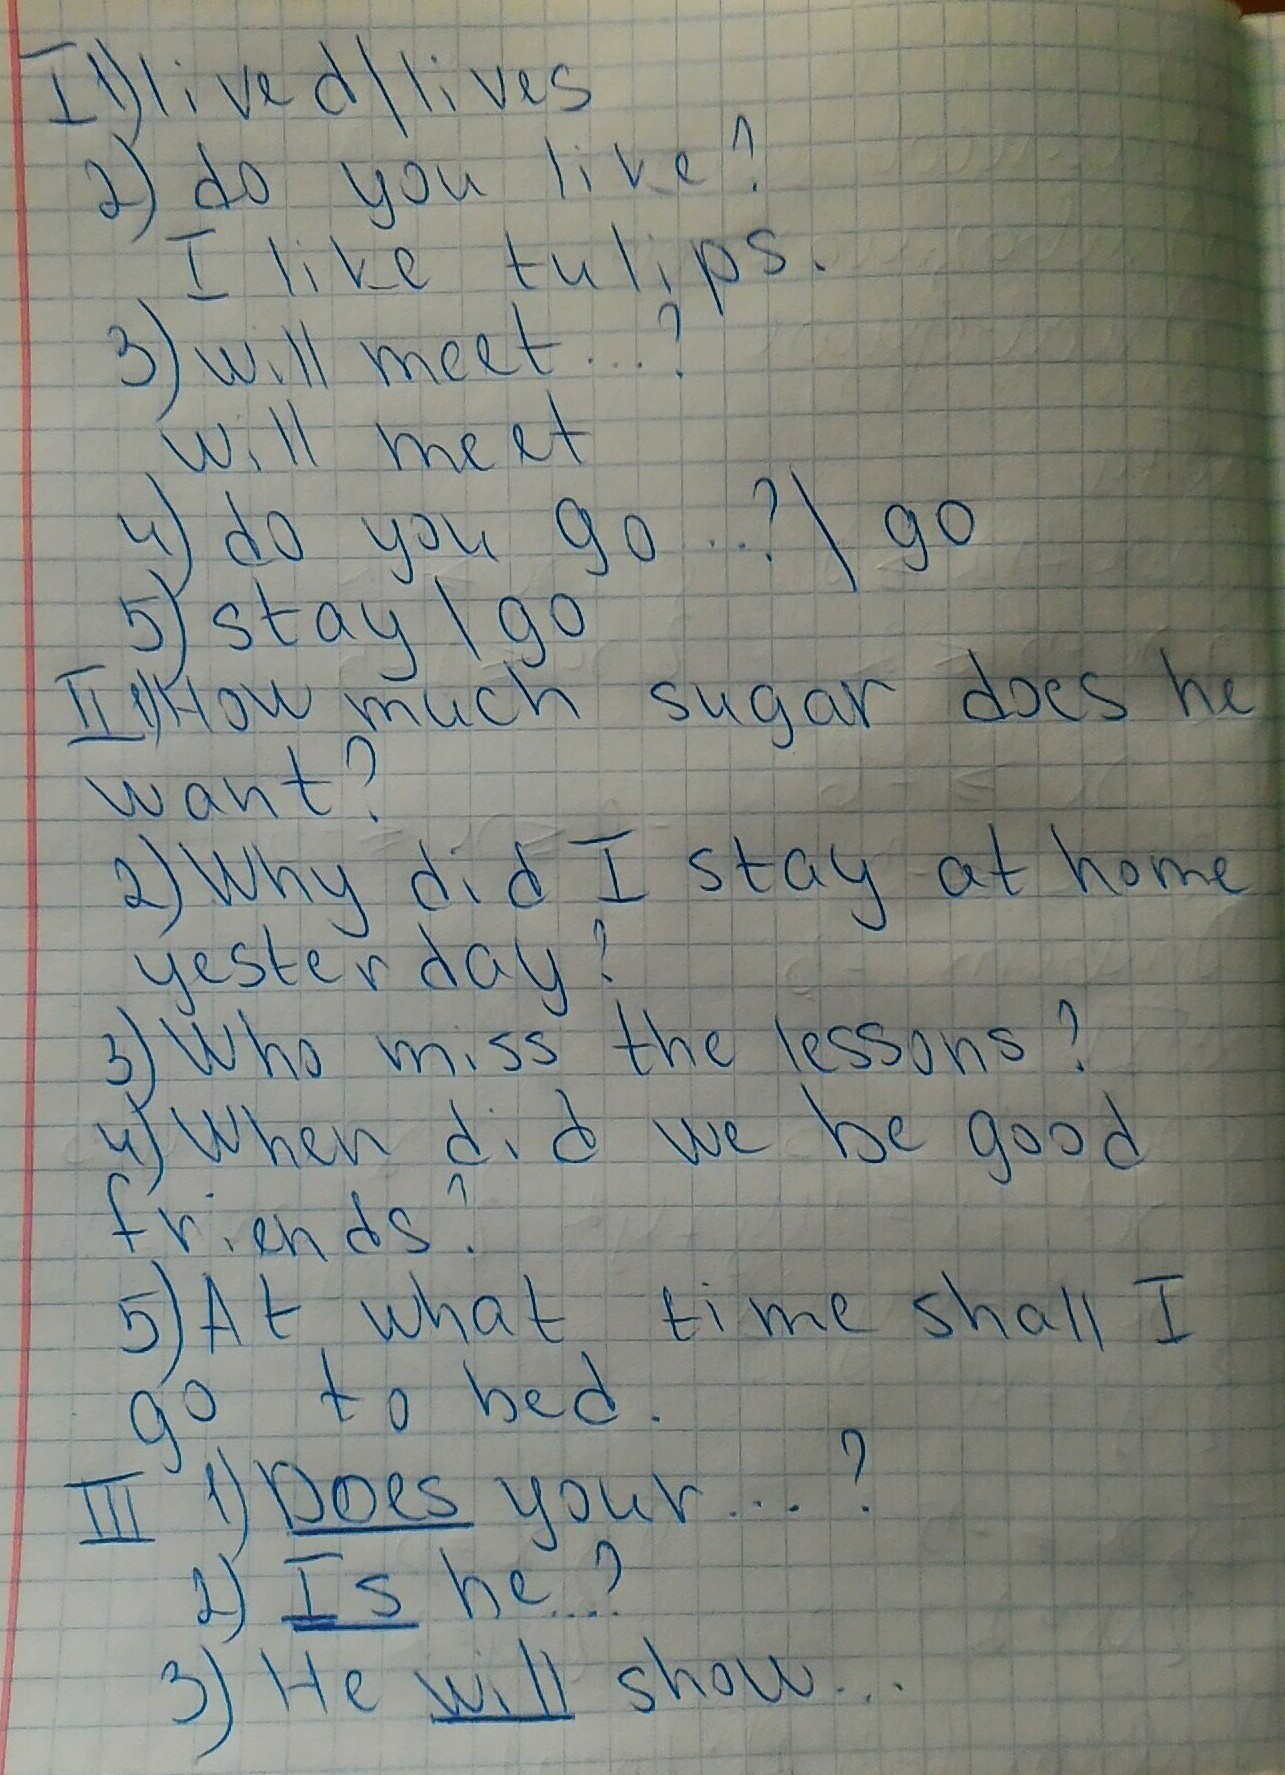 I 1) lived/lives
2) do you like?
I like tulips.
3) will meet...?
will meet
4) do you go ...? \ go
5) stay | go
II 1) How much sugar does he
want?
2) Why did I stay at home
yesterday?
3) Who miss the lessons?
4) When did we be good
friends?
5) At what time shall I
go to bed.
III 1) Does your ... ?
2) Is he...?
3) He will show...